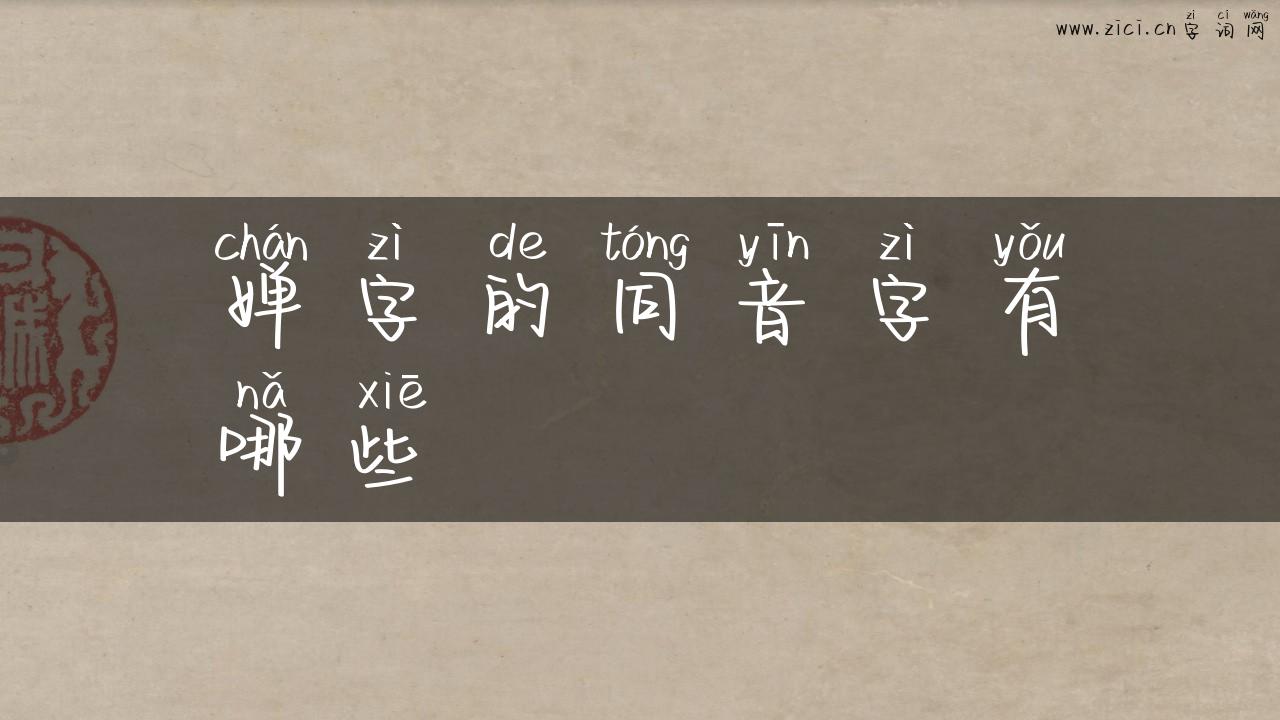 zì cí wǎng
www.zici.cn字词网
chán zì de tóng yīn zì yǒu
婵字的同音字有
nǎ xiē
哪些